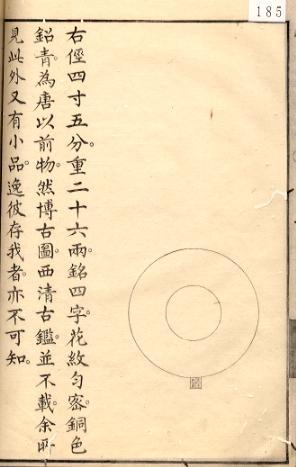 185
右徑四寸五分。重二十六兩。銘四字。花紋匀密。銅色
鉛青。為唐以前物。然博古圖。西清古鑑。並不載。余所
見此外又有小品。逸彼存我者。亦不可知。